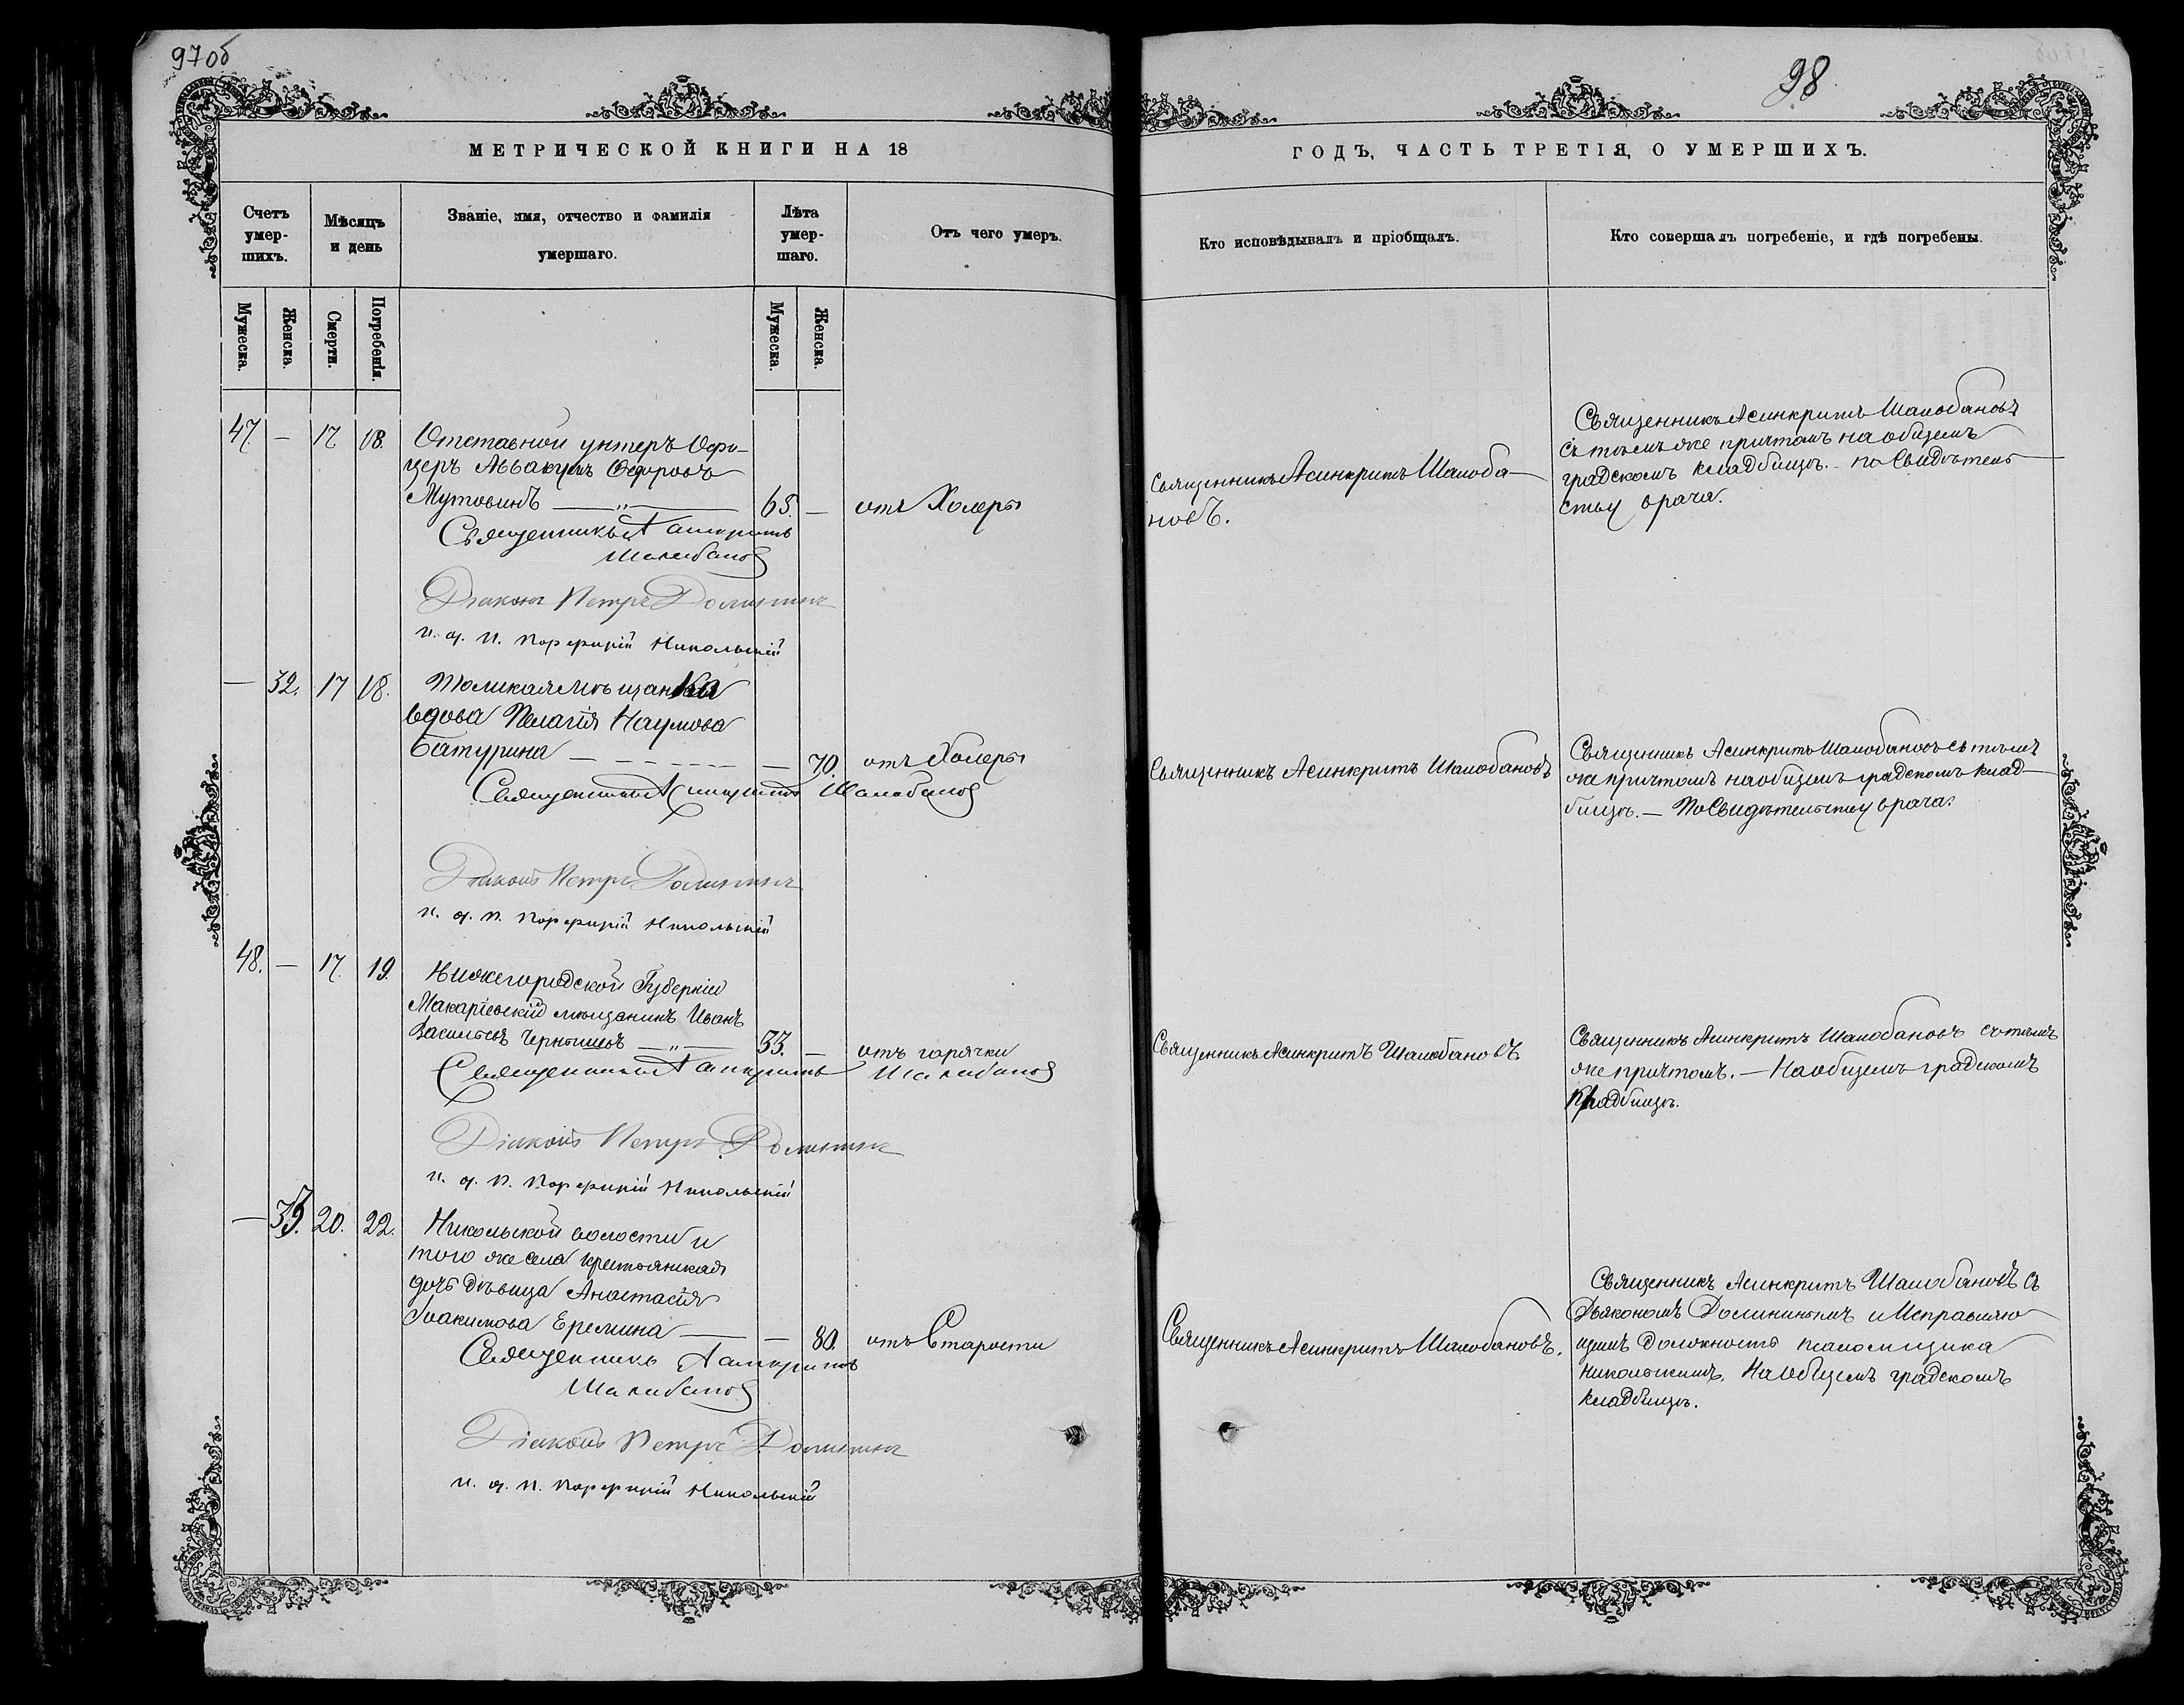 97об
98
МЕТРИЧЕСКОЙ КНИГИ НА 18
ГОДЪ, ЧАСТЬ ТРЕТІЯ, О УМЕРШИХЪ.
Счетъ умер-
шихъ.
Мѣсяцъ
и день
Званіе, имя, отчество и фамилія
умершаго.
Лѣта
умер-
шаго.
Отъ чего умеръ.
Кто исповѣдывалъ и пріобщалъ.
Кто совершалъ погребеніе, и гдѣ погребены.
Мужеска.
Женска.
Смерти.
Погребенія.
Мужеска.
Женска.
47 — 17 18.
Отставной унтеръ Офи-
церъ Аввакумъ Ѳедоровъ
Мутовинъ — „ — 65. — отъ Холеры
Священникъ Асинкритъ
Шалобановъ
Діаконъ Петръ Долининъ
и. д. п. Порфирій Никольскій
Священникъ Асинкритъ Шалоба-
новъ.
Священникъ Асинкритъ Шалобановъ
съ тѣмъ же причтомъ на общемъ
градскомъ кладбищѣ. – по Свидѣтель-
ству врача.
— 32. 17 18.
Томская мѣщанка
вдова Пелагія Наумова
Батурина — — 70. отъ Холеры
Священникъ Асинкритъ Шалобановъ
Діаконъ Петръ Долининъ
и. д. п. Порфирій Никольскій
Священникъ Асинкритъ Шалобановъ
Священникъ Асинкритъ Шалобановъ съ тѣмъ
же причтомъ на общемъ градскомъ клад-
бищѣ. — По Свидѣтельству врача.
48. — 17. 19.
Нижегородской Губерніи
Макаріевскій мѣщанинъ Иванъ
Васильевъ Чернышевъ — „ — 33. — отъ горячки
Священникъ Асинкритъ Шалобановъ
Діаконъ Петръ Долининъ
и. д. п. Порфирій Никольскій
Священникъ Асинкритъ Шалобановъ
Священникъ Асинкритъ Шалобановъ съ тѣмъ
же причтомъ. — На общемъ градскомъ
Кладбищѣ.
— 33. 20. 22.
Никольской волости и
того же села крестьянская
дочь дѣвица Анастасія
Іоакимова Еремина — — 80. отъ Старости
Священникъ Асинкритъ
Шалобановъ
Діаконъ Петръ Долининъ
и. д. п. Порфирій Никольскій
Священникъ Асинкритъ Шалобановъ.
Священникъ Асинкритъ Шалобановъ съ
Дьякономъ Долининымъ и Исправляю-
щимъ должность псаломщика
Никольскимъ. На общемъ градскомъ
кладбищѣ.